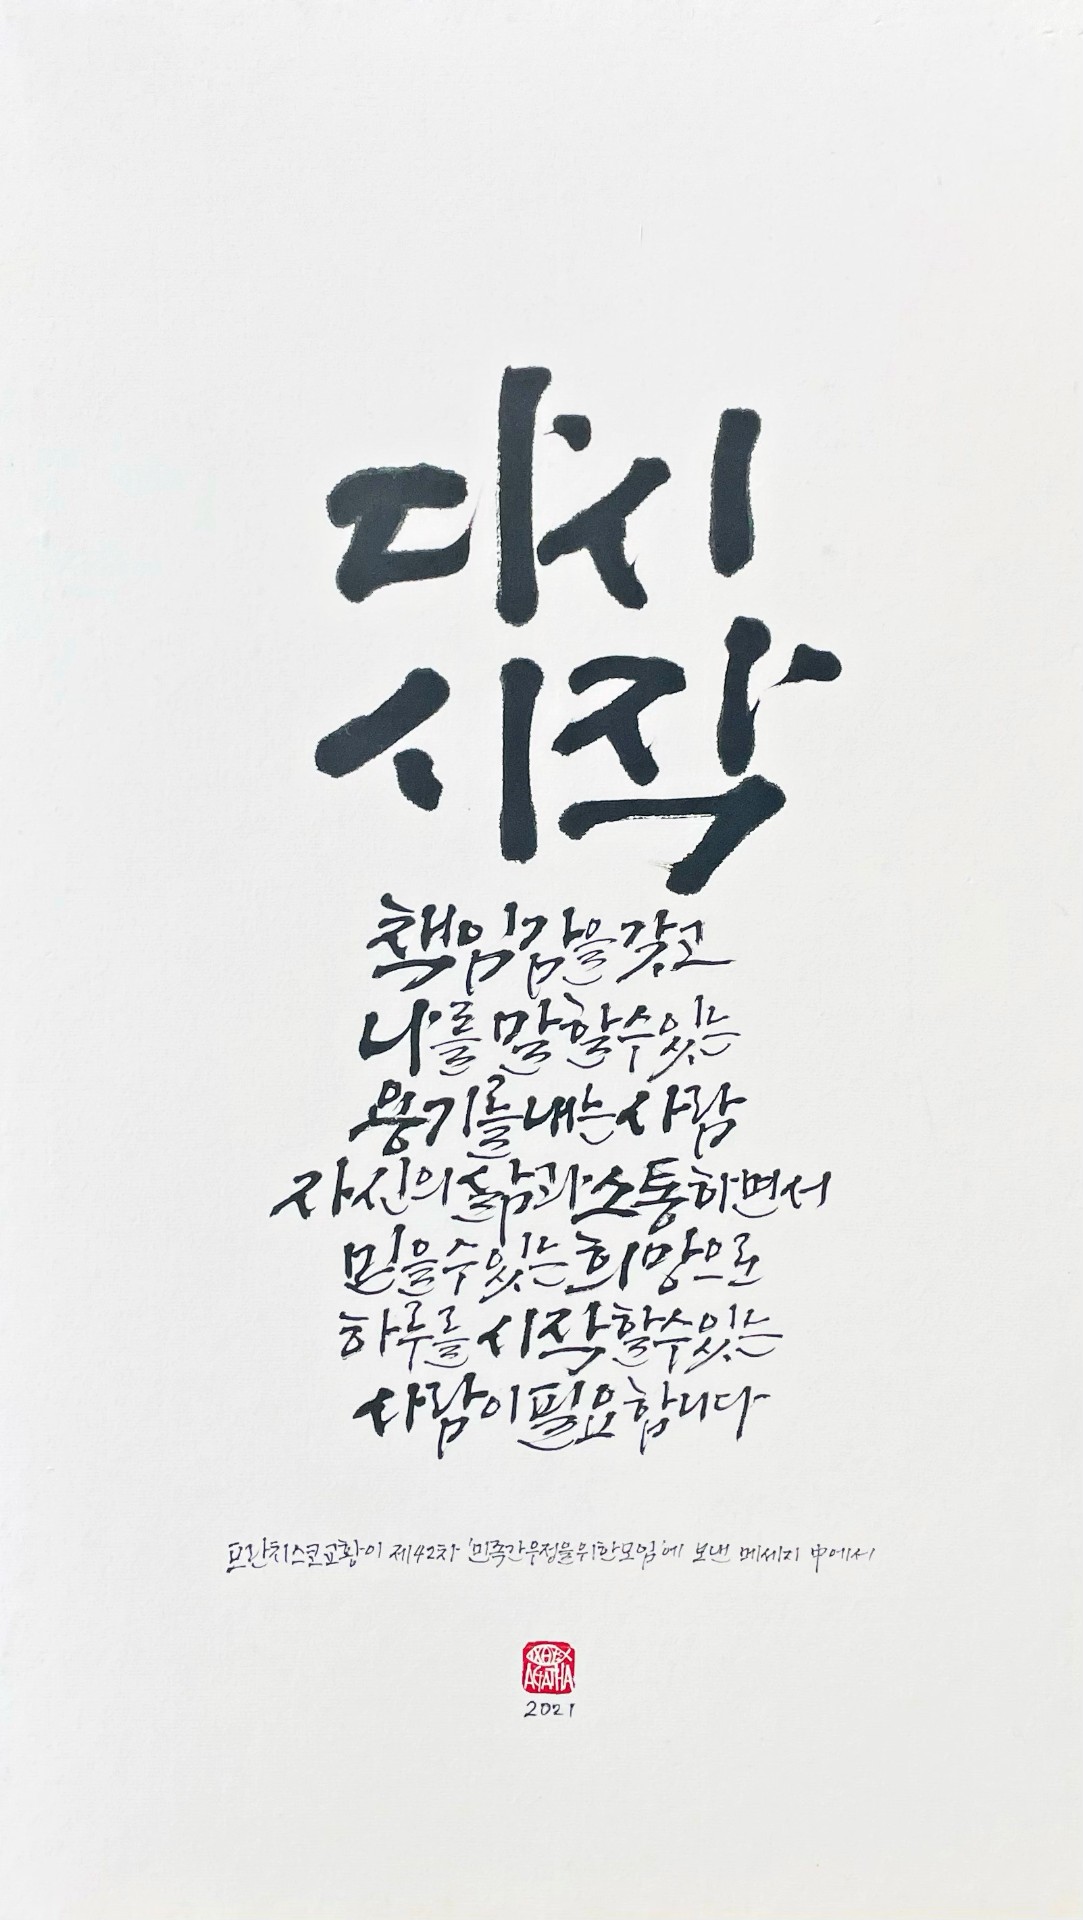 다시
시작
책임감을 갖고
나를 말할 수 있는
용기를 내는 사람
자신의 삶과 소통하면서
믿을 수 있는 희망으로
하루를 시작할 수 있는
사람이 필요합니다
프란치스코 교황이 제42차 '민족간우정을위한모임'에 보낸 메세지 中에서
AGATHA
2021